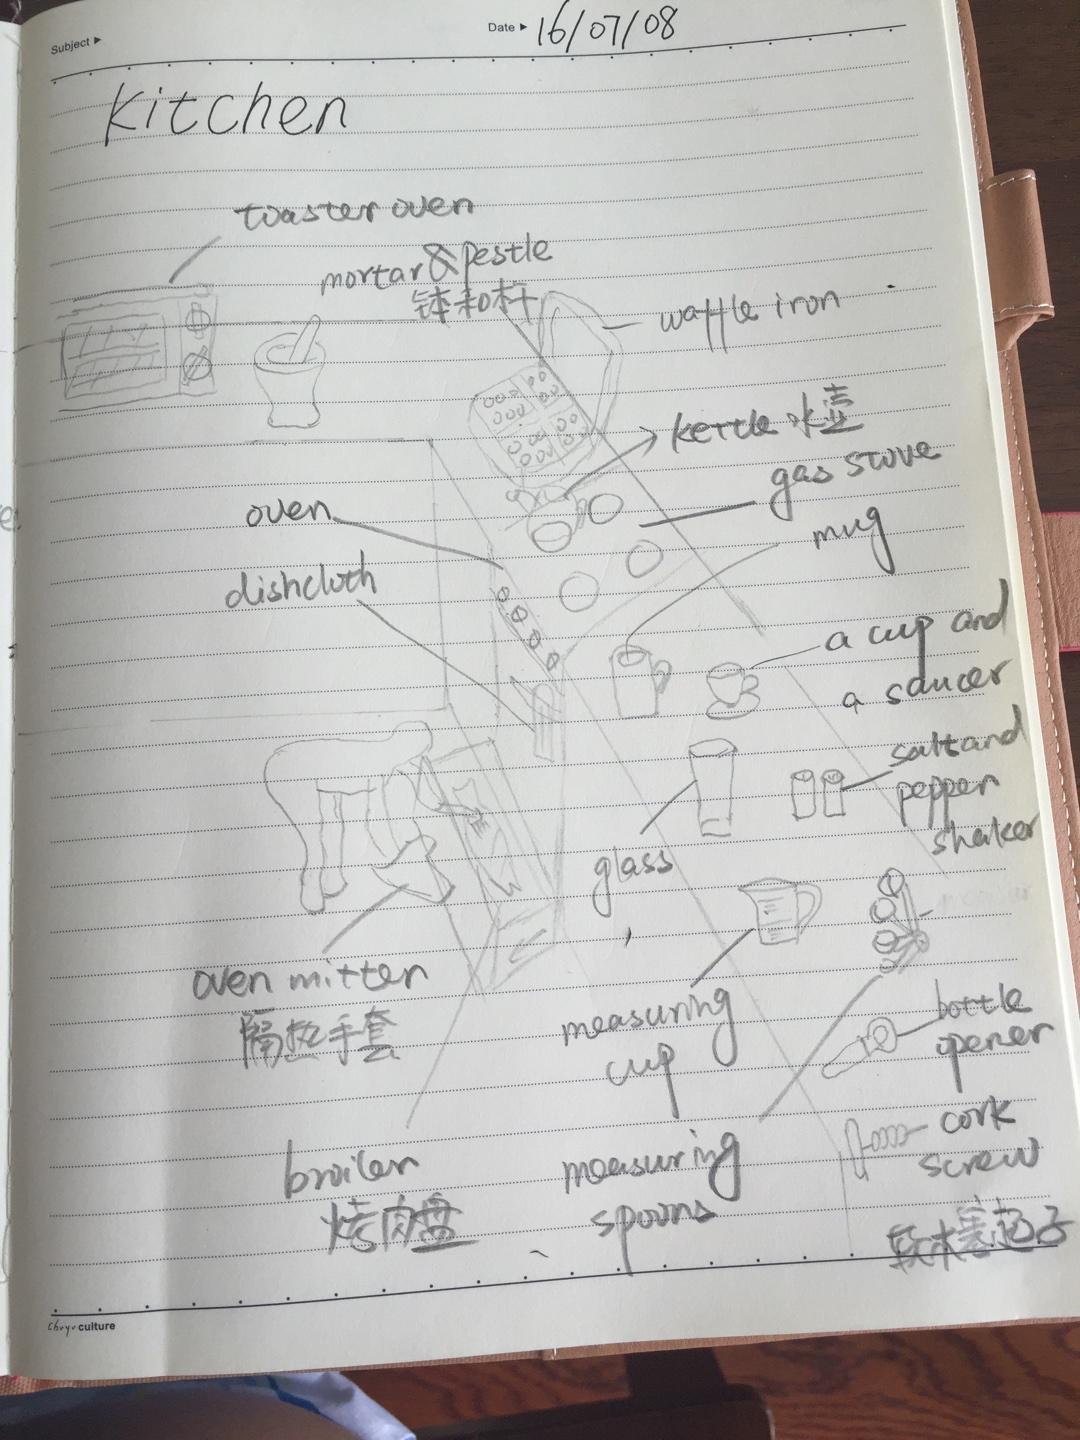 Subject ▶
Date ▶ 16/07/08
Kitchen
toaster oven
mortar & pestle
钵和杵
waffle iron
kettle 水壶
gas stove
oven
mug
dishcloth
a cup and
a saucer
salt and
pepper
shaker
glass
oven mitten
隔热手套
measuring
cup
bottle
opener
cork
screw
软木塞起子
broiler
烤肉盘
measuring
spoons
chuyu culture